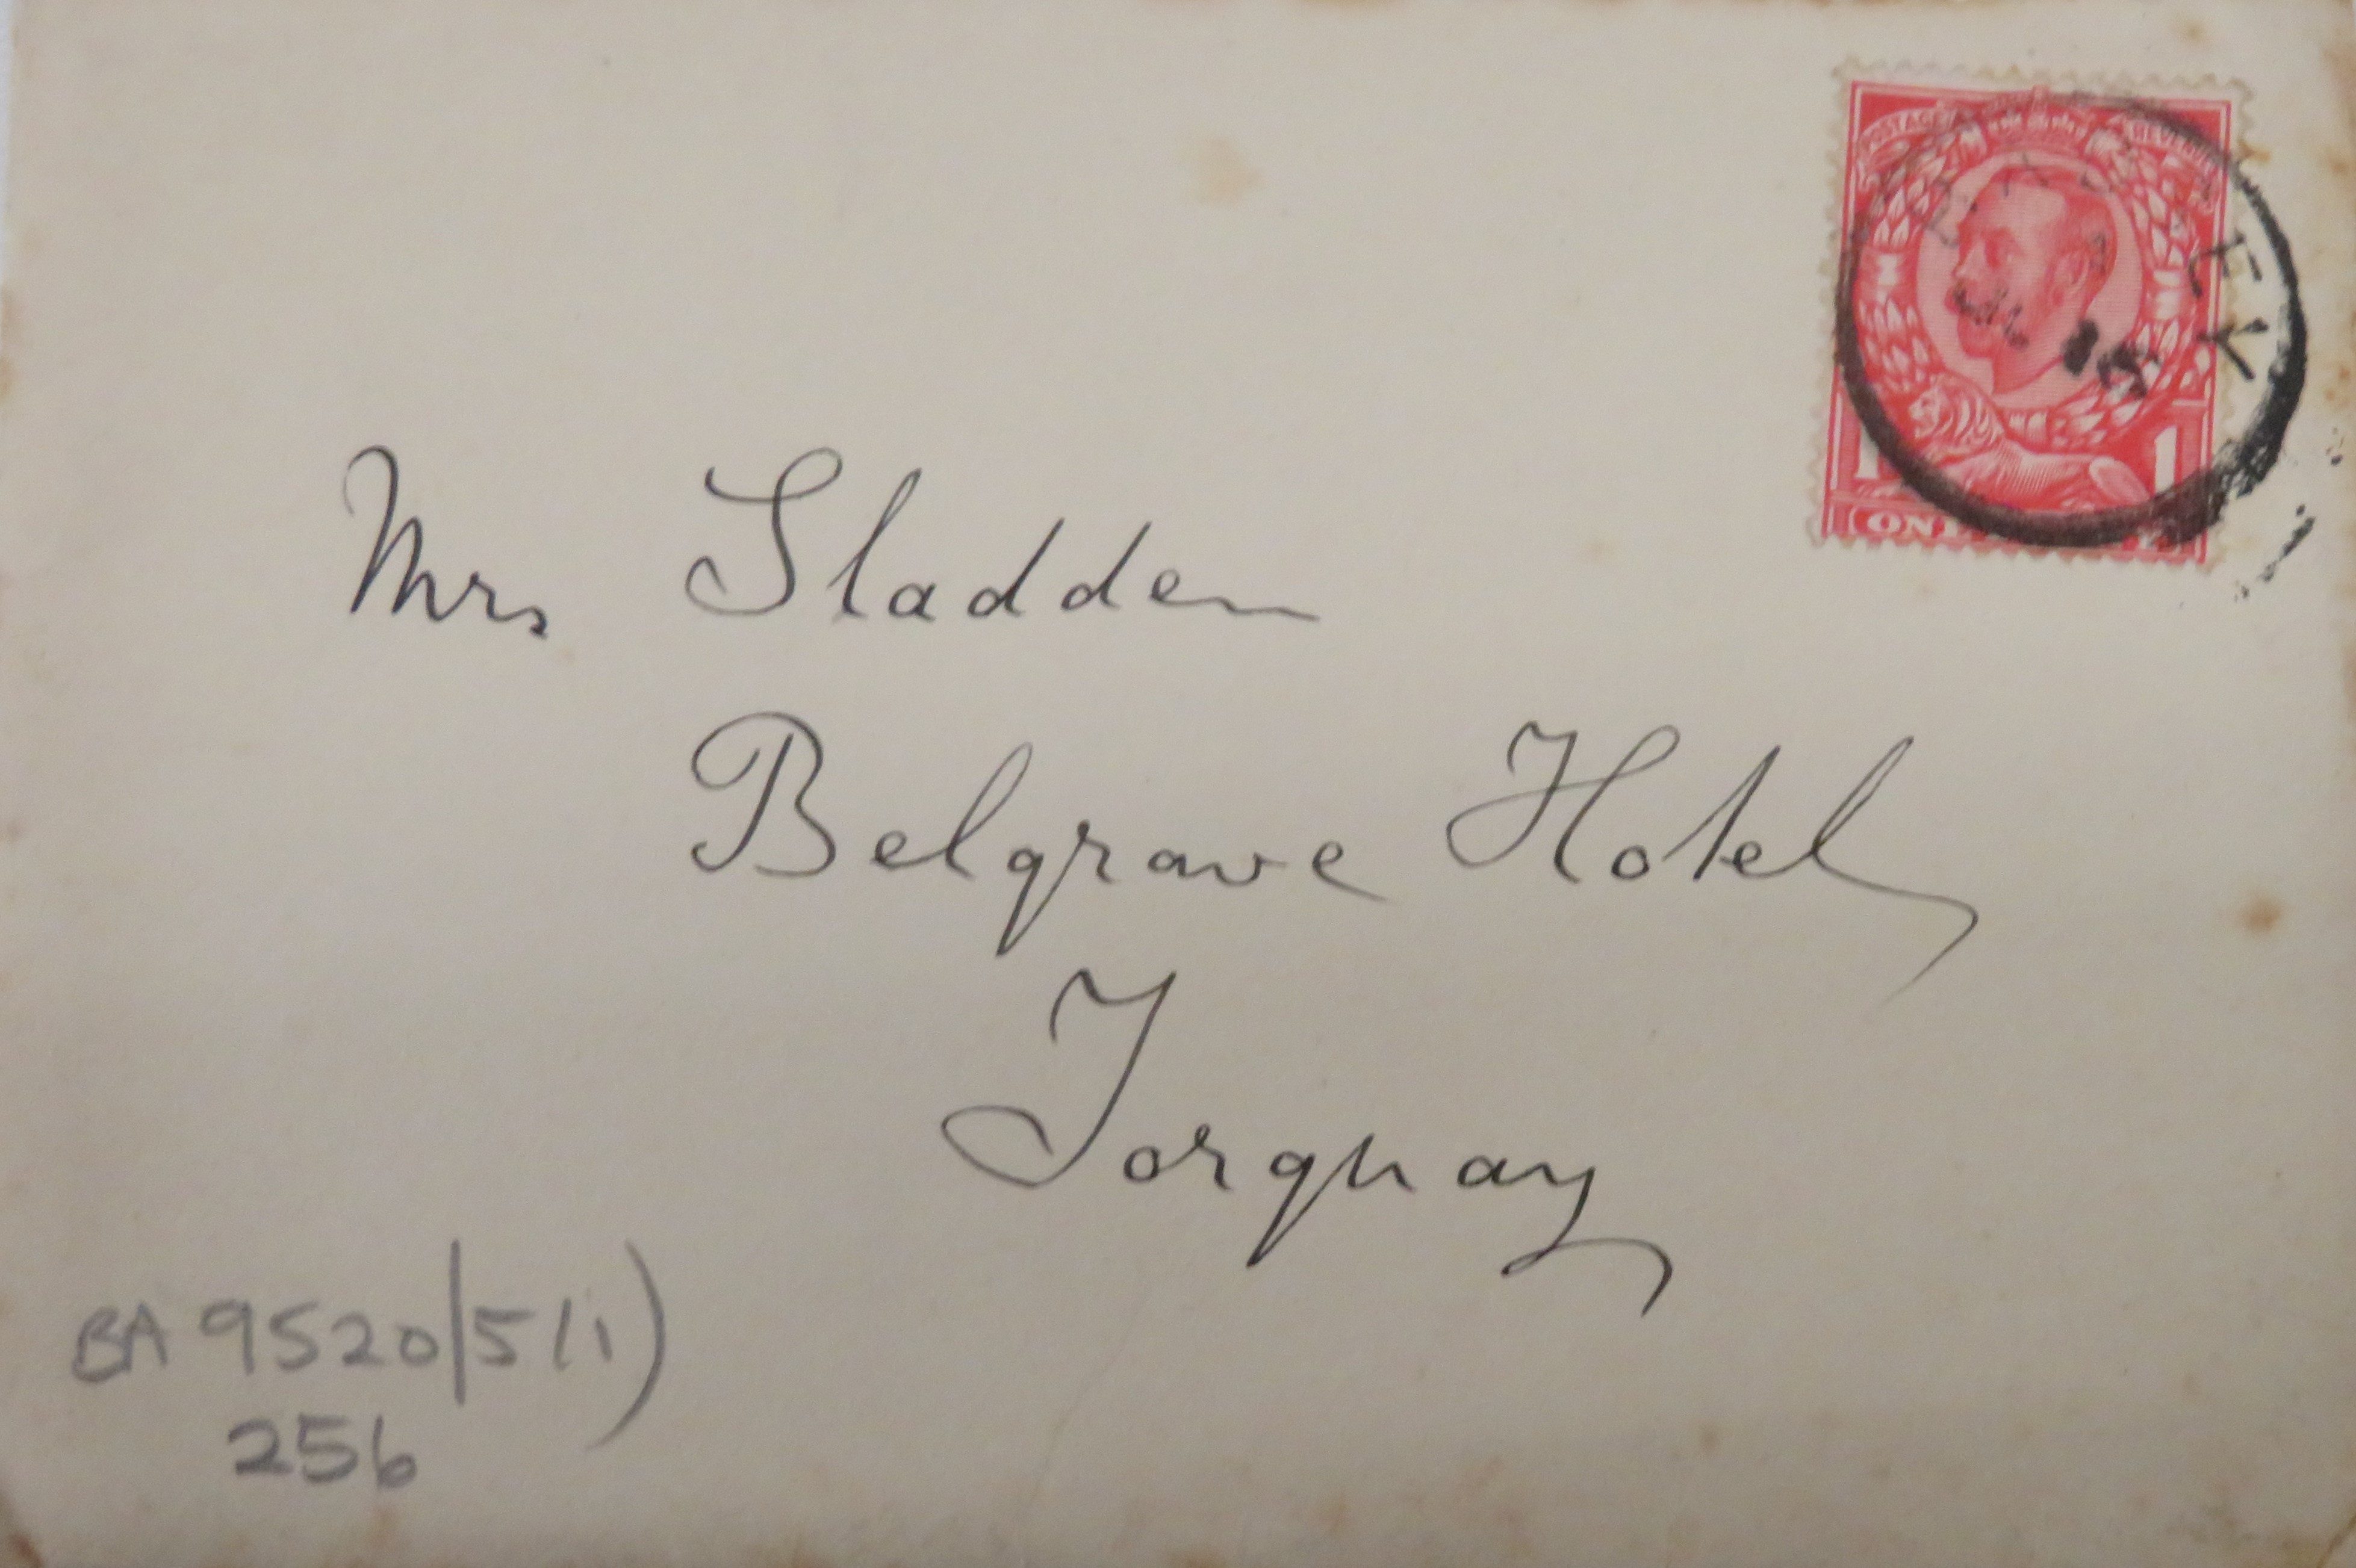 POSTAGE REVENUE
1 1
ONE
Mrs Sladden
Belgrave Hotel
Torquay
BA 9520/5/1)
256